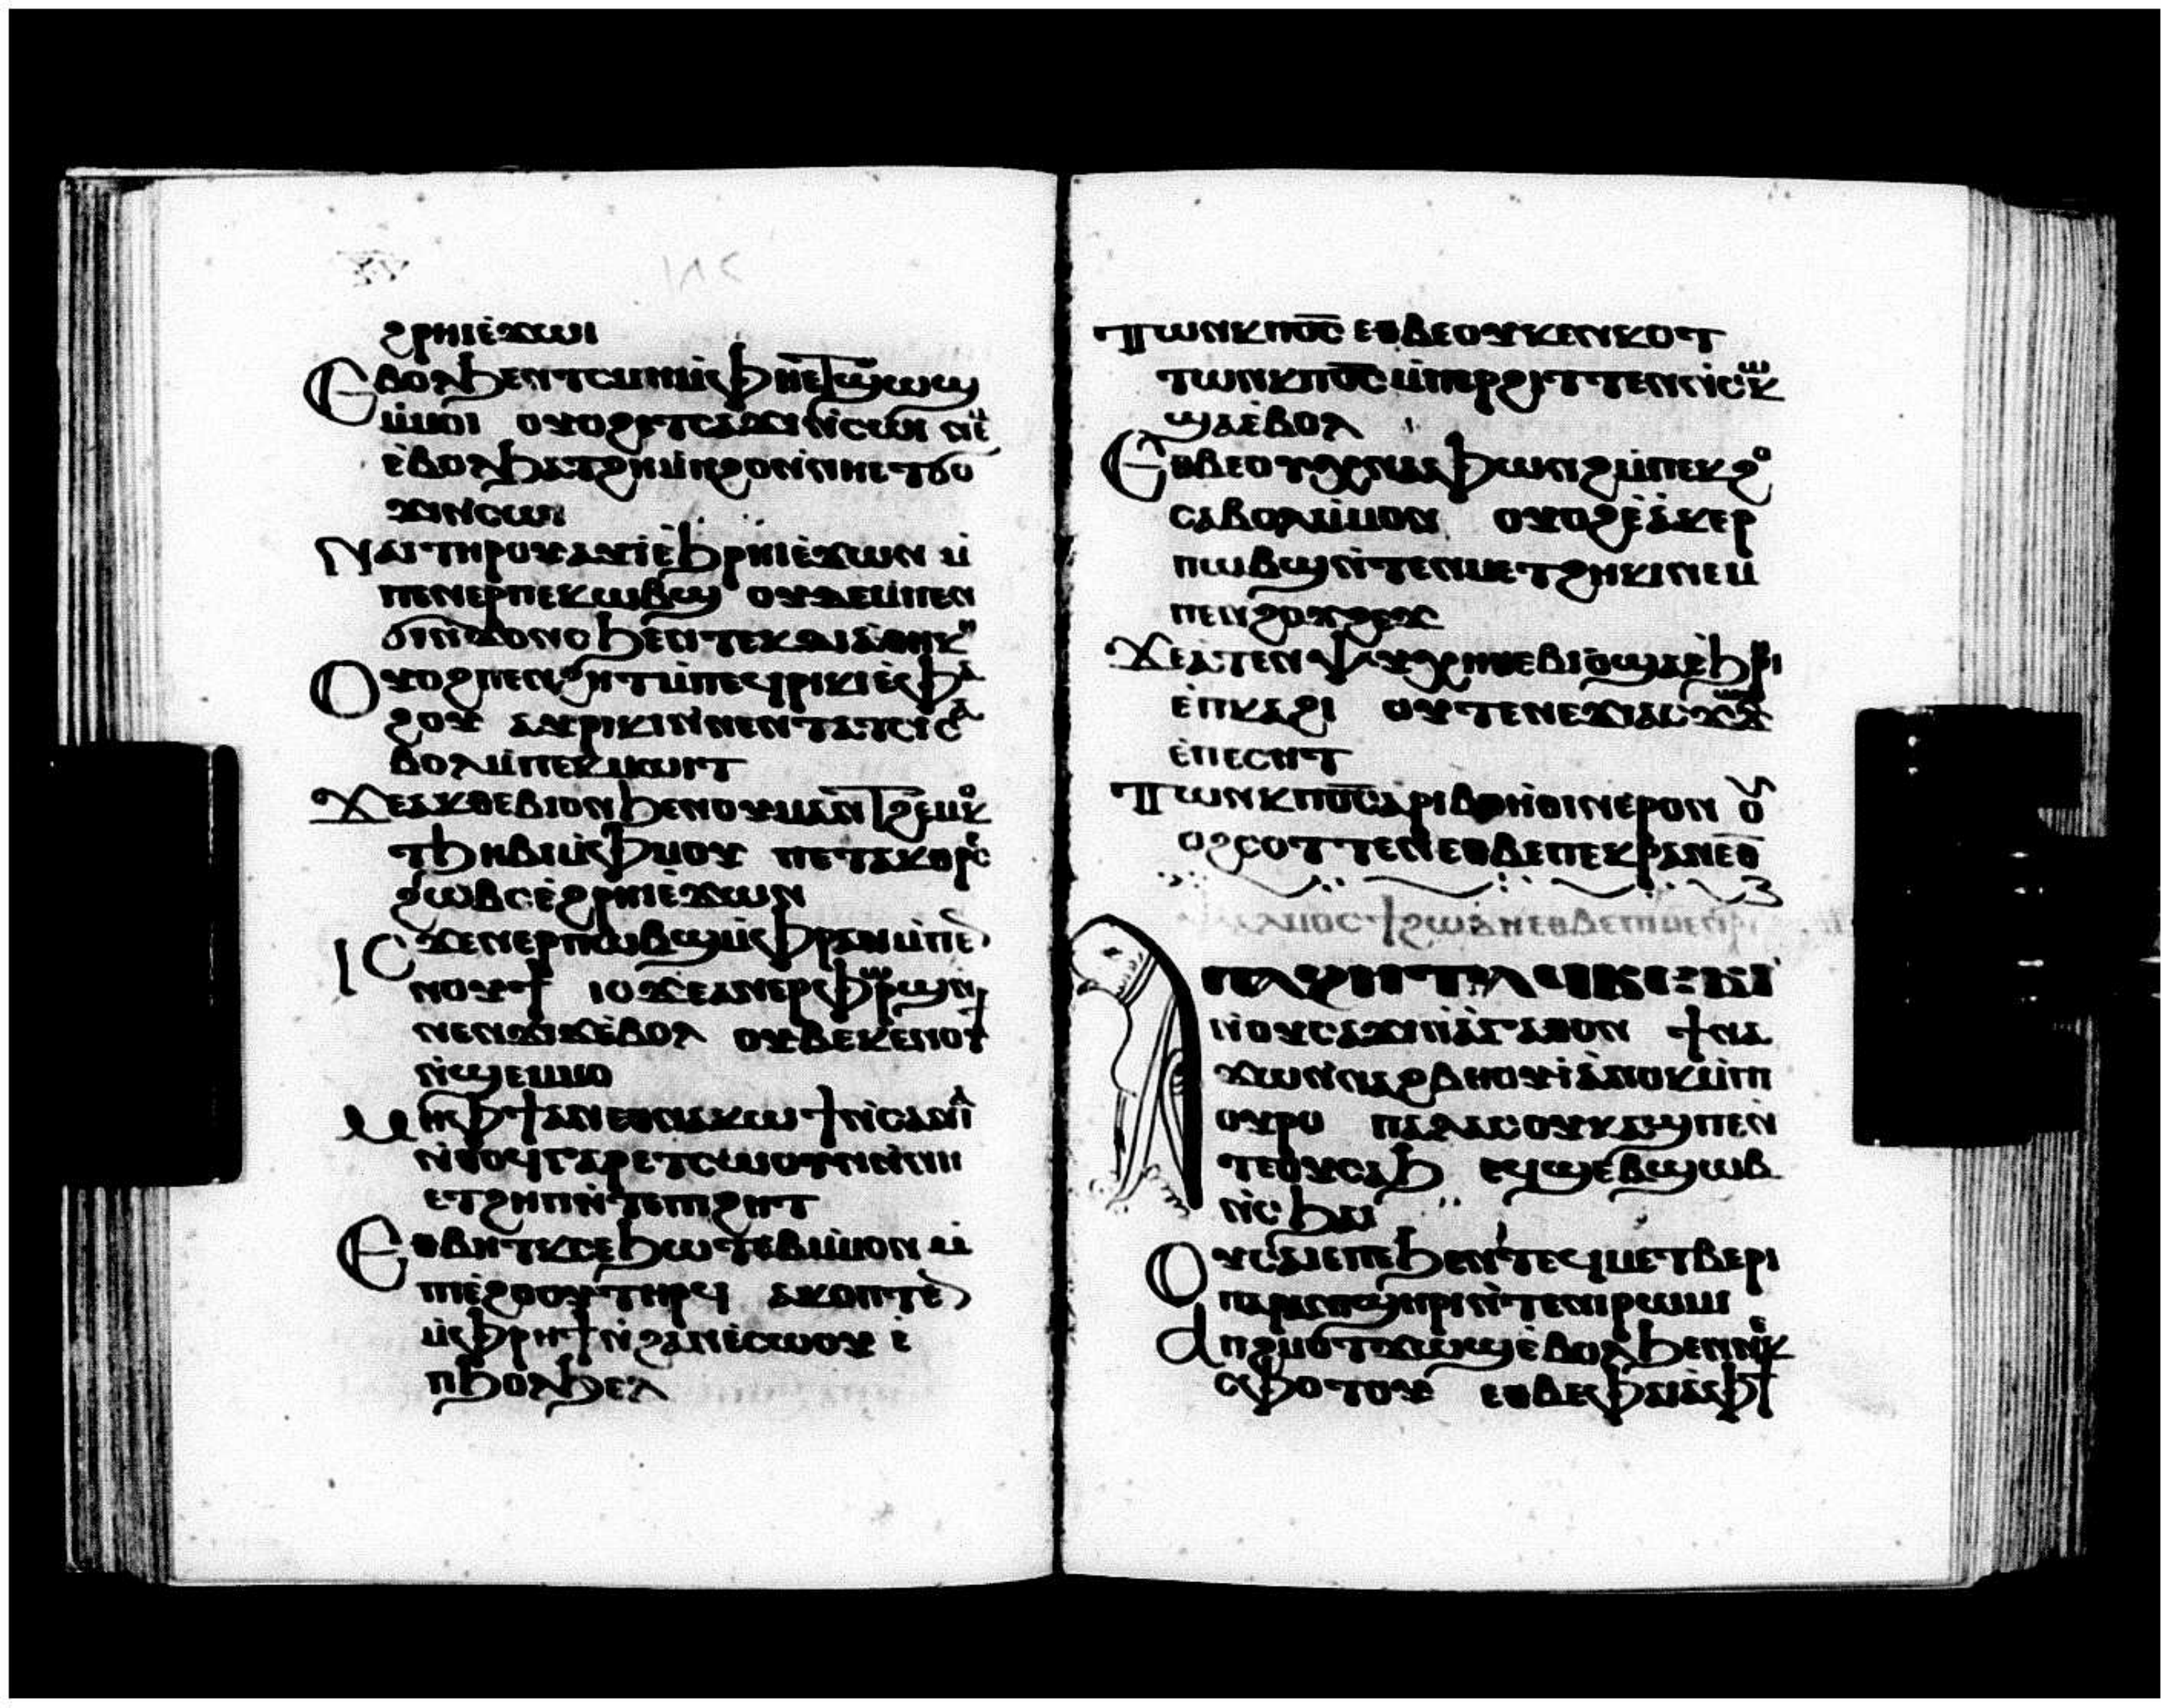 ϩⲣⲏⲓⲉ̀ϫⲱⲓ
Ⲉⲃⲟⲗϧⲉⲛⲧⲥⲙⲏⲙ̀ⲫⲏⲉϯϣⲱϣ
ⲙ̀ⲙⲟⲓ ⲟⲩⲟϩⲉⲧⲥⲁϫⲓⲛ̀ⲥⲱⲓ ⲛⲉⲙ
ⲉ̀ⲃⲟⲗϧⲁⲧϩⲏⲙ̀ⲡϩⲟⲛ̀ⲛⲏⲉⲧϭⲟ
ϫⲓⲛ̀ⲥⲱⲓ
Ⲛⲁⲓⲧⲏⲣⲟⲩⲁⲩⲓ̀ⲉ̀ϧⲣⲏⲓⲉ̀ϫⲱⲛ ⲙ̀
ⲡⲉⲛⲉⲣⲡⲉⲕⲱⲃϣ ⲟⲩⲇⲉⲙ̀ⲡⲉⲛ
ϭⲓⲛ̀ϫⲟⲛⲥϧⲉⲛⲧⲉⲕⲇⲓⲁⲑⲏⲕⲏ
Ⲟⲩⲟϩⲡⲉⲛϩⲏⲧⲙ̀ⲡⲉϥⲣⲓⲕⲓⲉ̀ⲫⲁ
ϩⲟⲩ ⲁⲕⲣⲓⲕⲓⲛ̀ⲛⲉⲛⲧⲁⲧⲥⲓⲥⲁ
ⲃⲟⲗⲙ̀ⲡⲉⲕⲙⲱⲓⲧ
Ϫⲉⲁⲕⲑⲉⲃⲓⲟⲛϧⲉⲛⲟⲩⲙⲁⲛ̀ϯϩⲉⲙⲕⲟ
ⲧϧⲏⲃⲓⲙ̀ⲫⲙⲟⲩ ⲡⲉⲧⲁⲕⲑⲣⲉⲥ
ϩⲱⲃⲥⲉ̀ϩⲣⲏⲓⲉ̀ϫⲱⲛ
Ⲓⲥϫⲉⲛⲉⲣⲡⲱⲃϣⲙ̀ⲫⲣⲁⲛⲙ̀ⲡⲉⲛ
ⲛⲟⲩϯ ⲓⲥϫⲉⲁⲛⲉⲣⲫⲣⲱϣⲛ̀
ⲛⲉⲛϫⲓϫⲉ̀ⲃⲟⲗ ⲟⲩⲃⲉⲕⲉⲛⲟⲩϯ
ⲛ̀ϣⲉⲙⲙⲟ
Ⲙⲏⲫϯⲁⲛⲉⲑⲛⲁⲕⲱϯⲛ̀ⲥⲁⲛⲁⲓ
ⲛ̀ⲑⲟϥⲅⲁⲣⲉⲧⲥⲱⲟⲩⲛⲛ̀ⲛⲏ
ⲉⲧϩⲏⲡⲛ̀ⲧⲉⲡⲓϩⲏⲧ
Ⲉⲑⲃⲏⲧⲕⲥⲉϧⲱⲧⲉⲃⲙ̀ⲙⲟⲛ ⲙ̀
ⲡⲓⲉ̀ϩⲟⲟⲩⲧⲏⲣϥ ⲁⲩⲟⲡⲧⲉⲛ
ⲙ̀ⲫⲣⲏϯⲛ̀ϩⲁⲛⲉ̀ⲥⲱⲟⲩ ⲉ̀
ⲡϧⲟⲗϧⲉⲗ
Ⲧⲱⲛⲕⲡⲟ̅ⲥ̅ ⲉⲑⲃⲉⲟⲩⲕⲉⲛⲕⲟⲧ
ⲧⲱⲛⲕⲡⲟ̅ⲥ̅ⲙ̀ⲡⲉⲣϩⲓⲧⲧⲉⲛⲛ̀ⲥⲱⲕ
ϣⲁⲉ̀ⲃⲟⲗ
Ⲉⲑⲃⲉⲟⲩⲭⲛⲁⲫⲱⲛϩⲙ̀ⲡⲉⲕϩⲟ
ⲥⲁⲃⲟⲗⲙ̀ⲙⲟⲛ ⲟⲩⲟϩⲉ̀ⲁⲕⲉⲣ
ⲡⲱⲃϣⲛ̀ⲧⲉⲛⲙⲉⲧϩⲏⲕⲓⲛⲉⲙ
ⲡⲉⲛϩⲟϫϩⲉϫ
Ϫⲉⲁⲧⲉⲛⲯⲩⲭⲏⲑⲉⲃⲓⲟϣⲁⲉ̀ϧⲣⲏⲓ
ⲉ̀ⲡⲕⲁϩⲓ ⲟⲩⲧⲉⲛⲉϫⲓⲁⲥϫⲱⲗϫ
ⲉ̀ⲡⲉⲥⲏⲧ
Ⲧⲱⲛⲕⲡⲟ̅ⲥ̅ⲁⲣⲓⲃⲟⲏⲑⲓⲛⲉ̀ⲣⲟⲛ ⲟⲩ
ⲟϩⲥⲟⲧⲧⲉⲛⲉⲑⲃⲉⲡⲉⲕⲣⲁⲛⲉⲑ̅
ⲡⲁϩⲏⲧⲁϥⲃⲉⲃⲓ
ⲛ̀ⲟⲩⲥⲁϫⲓⲛ̀ⲁ̀ⲅⲁⲑⲟⲛ ϯⲛⲁ
ϫⲱⲛ̀ⲛⲁϩⲃⲏⲟⲩⲓ̀ⲁ̀ⲛⲟⲕⲙ̀ⲡ
ⲟⲩⲣⲟ ⲡⲁⲗⲁⲥⲟⲩⲕⲁϣⲡⲉⲛ̀
ⲧⲉⲟⲩⲥⲁϧ ⲉϥϣⲉⲃϣⲱⲃ
ⲛ̀ⲥϧⲁⲓ
Ⲟⲩⲥⲁⲓⲉⲡⲉϧⲉⲛⲧⲉϥⲙⲉⲧⲃⲉⲣⲓ
ⲡⲁⲣⲁⲛⲓϣⲏⲣⲓⲛ̀ⲧⲉⲛⲓⲣⲱⲙⲓ
Ⲁⲡϩⲙⲟⲧϫⲱϣⲉ̀ⲃⲟⲗϧⲉⲛⲛⲉⲕ
ⲥⲫⲟⲧⲟⲩ ⲉⲑⲃⲉⲫⲁⲓⲁ̀ⲫϯ